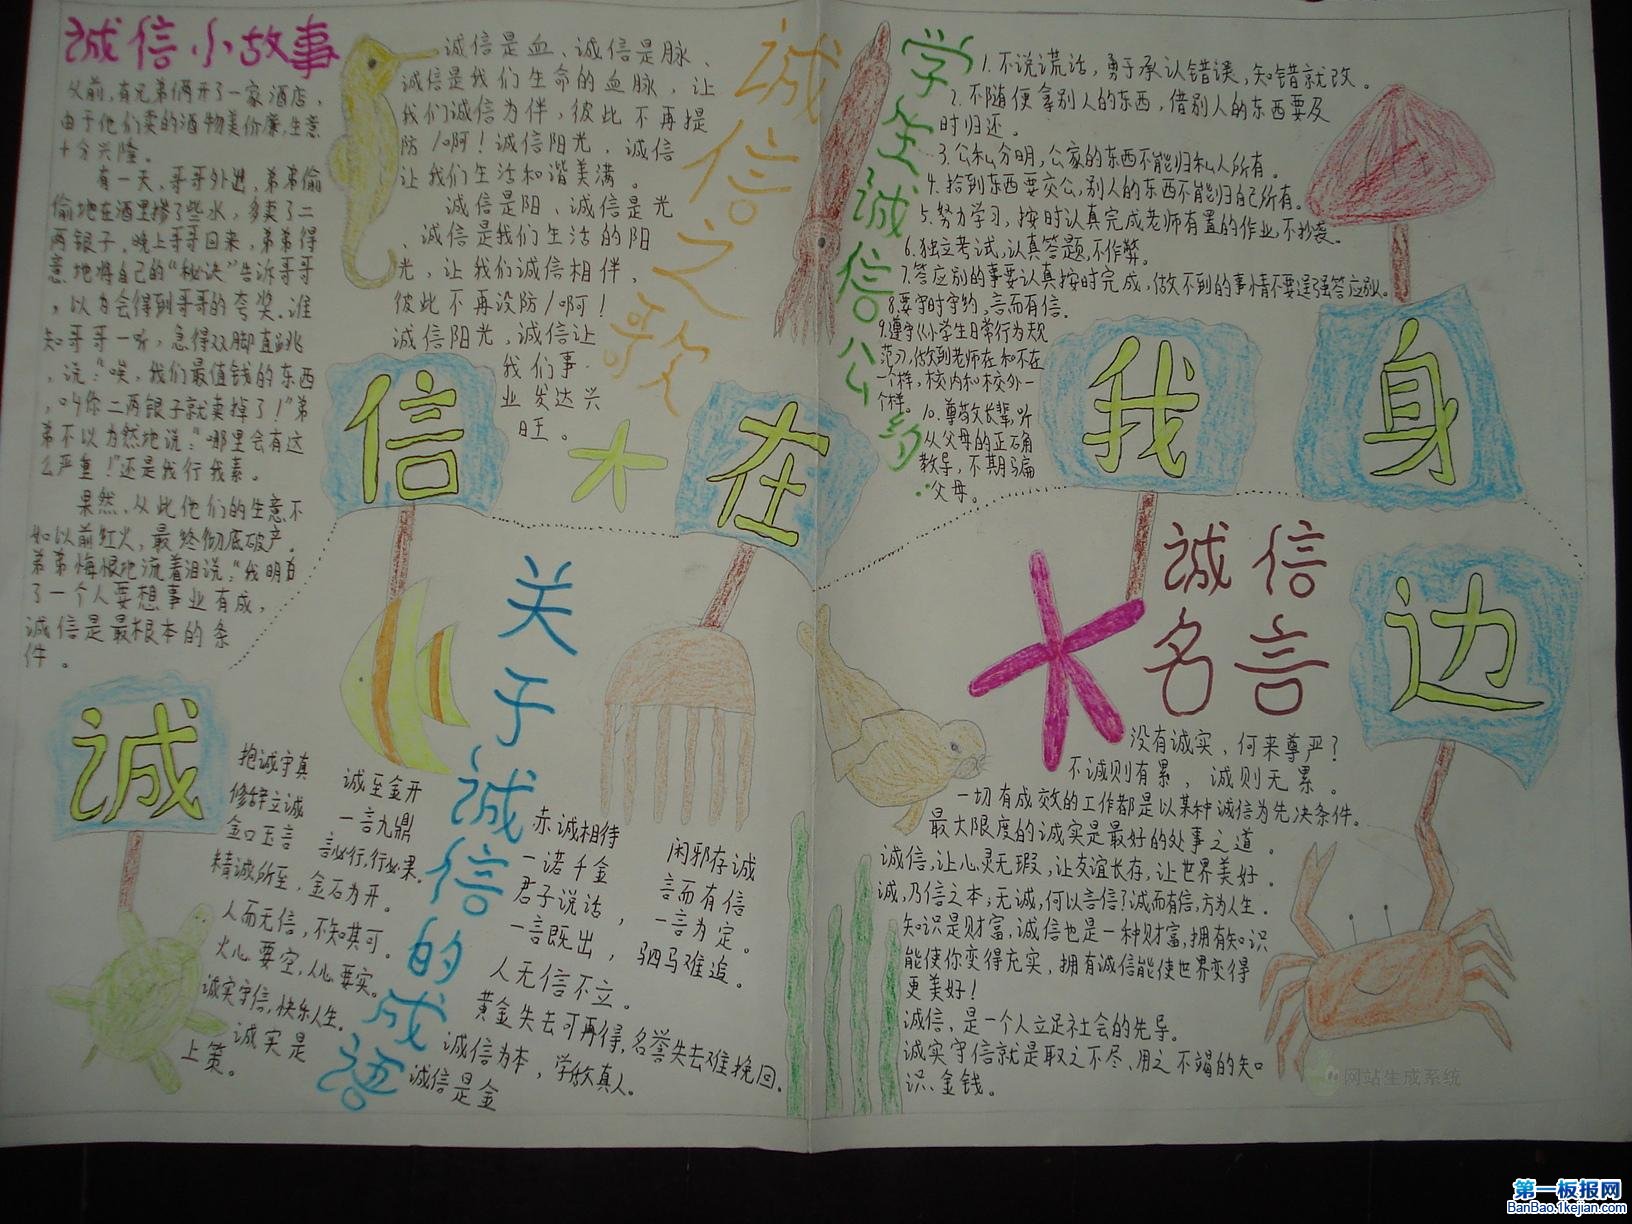 诚信小故事
从前,有兄弟俩开了一家酒店,
由于他们卖的酒物美价廉,生意
十分兴隆。
有一天,哥哥外出,弟弟偷
偷地在酒里掺了些水,多卖了二
两银子。晚上哥哥回来,弟弟得
意地将自己的“秘诀”告诉哥哥
,以为会得到哥哥的夸奖。谁
知哥哥一听,急得双脚直跳
,说:“唉,我们最值钱的东西
,叫你二两银子就卖掉了!”弟
弟不以为然地说:“哪里会有这
么严重!”还是我行我素。
果然,从此他们的生意不
如以前红火,最终彻底破产。
弟弟悔恨地流着泪说:“我明白
了一个人要想事业有成,
诚信是最根本的条
件。
诚信之歌
诚信是血、诚信是脉、
诚信是我们生命的血脉,让
我们诚信为伴,彼此不再提
防/啊!诚信阳光,诚信
让我们生活和谐美满。
诚信是阳、诚信是光
、诚信是我们生活的阳
光,让我们诚信相伴,
彼此不再设防/啊!
诚信阳光,诚信让
我们事
业发达兴
旺。
学生诚信公约
1.不说谎话,勇于承认错误,知错就改。
2.不随便拿别人的东西,借别人的东西要及
时归还。
3.公私分明,公家的东西不能归私人所有。
4.拾到东西要交公,别人的东西不能归自己所有。
5.努力学习,按时认真完成老师布置的作业不抄袭。
6.独立考试,认真答题,不作弊。
7.答应别的事要认真按时完成,做不到的事情不要逞强答应别人。
8.要守时守约,言而有信。
9.遵守《小学生日常行为规
范》,做到老师在和不在
一个样,校内和校外一
个样。
10.尊敬长辈,听
从父母的正确
教导,不期骗
父母。
诚
信
在
我
身
边
关于诚信的成语
抱诚守真
修辞立诚
金口玉言
精诚所至,金石为开。
诚至金开
一言九鼎
言必行,行必果。
人而无信,不知其可。
火心要空,人心要实。
诚实守信,快乐人生。
诚实是
上策。
赤诚相待
一诺千金
君子说话,
一言既出,
闲邪存诚
言而有信
一言为定。
驷马难追。
人无信不立。
黄金失去可再得,名誉失去难挽回。
诚信为本,学做真人。
诚信是金
诚信
名言
没有诚实,何来尊严?
不诚则有累,诚则无累。
一切有成效的工作都是以某种诚信为先决条件。
最大限度的诚实是最好的处事之道。
诚信,让心灵无瑕,让友谊长存,让世界美好。
诚,乃信之本;无诚,何以言信?诚而有信,方为人生。
知识是财富,诚信也是一种财富,拥有知识
能使你变得充实,拥有诚信能使世界变得
更美好!
诚信,是一个人立足社会的先导。
诚实守信就是取之不尽、用之不竭的知
识、金钱。
网站生成系统
第一板报网
BanBao.1kejian.com